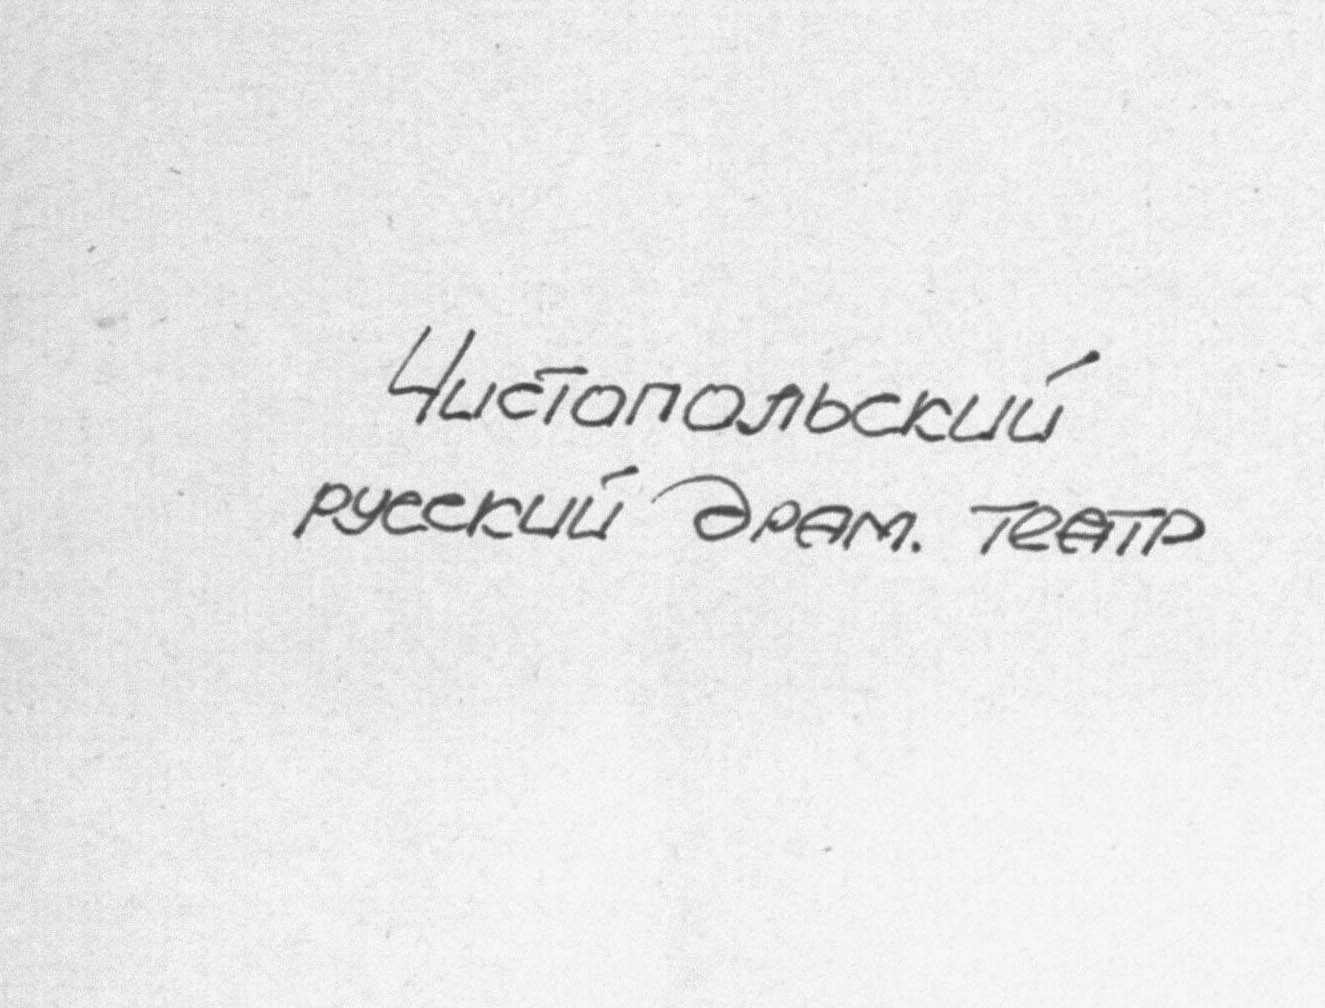 Чистопольский
русский драм. театр